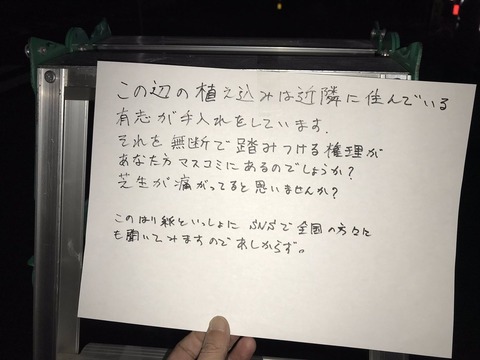 この辺の植え込みは近隣に住んでいる
有志が手入れをしています.
それを無断で踏みつける権理が
あなた方マスコミにあるのでしょうか?
芝生が痛がってると思いませんか?
このはり紙といっしょに SNSで全国の方々に
も聞いてみますのであしからず。